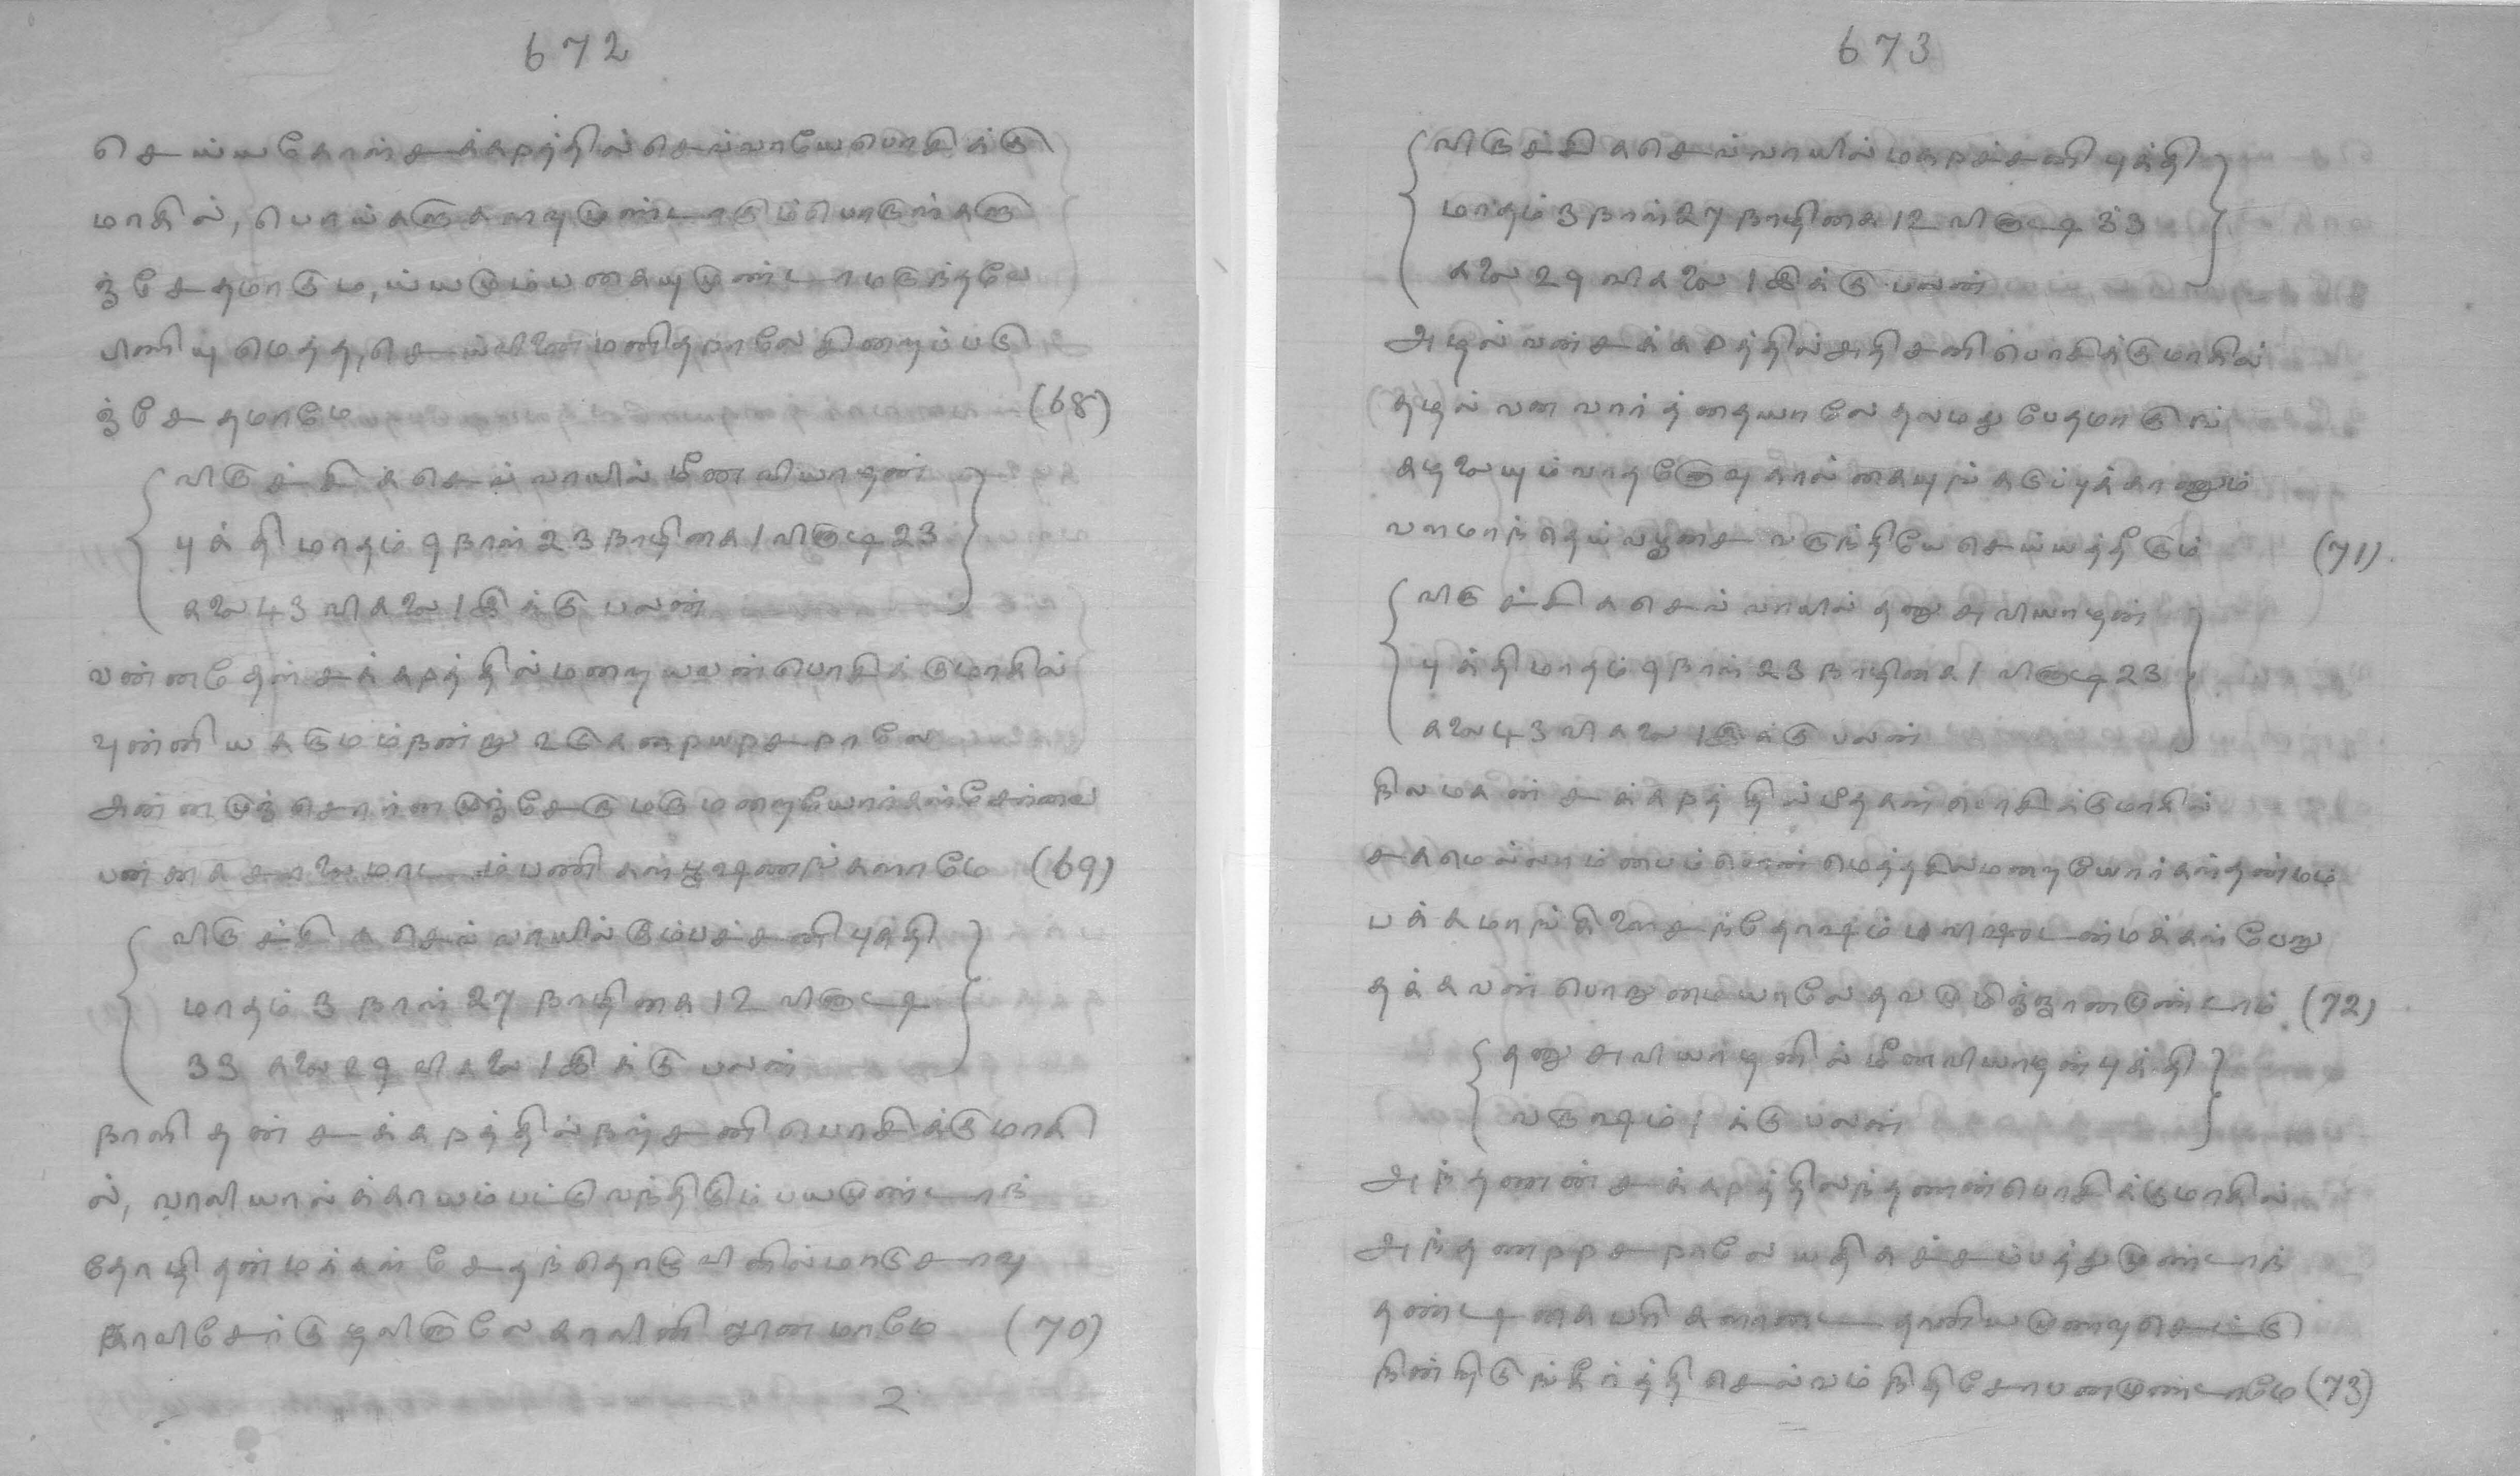 672
செய்யகோள்சக்கரத்தில்செவ்வாயேபொசிக்கு
மாகில், பொய்களுகளவுமுண்டாகும்பொருள்களு
ஞ்சேதமாகும், ய்யமும்பகையுமுண்டாமருந்தலே
பிணியுமெத்த, செய்வினைமனிதராலேசிறைப்படு
ஞ்சேதமாமே (68)
விருச்சிகசெவ்வாயில் மீனவியாழன்
புக்திமாதம் 9 நாள் 23 நாழிகை 1 விகுடி 23
கலை 43 விகலை 1 இக்கு பலன்
வண்ணகோள்சக்கரத்தில்மறையவன்பொசிக்குமாகில்
புண்ணியகருமம்நன்று உடுகரையரசராலே
அன்னமுஞ்சொர்ணமுஞ்சேருமருமறையோர்கள்சேர்வை
பன்னகசாலைமாடம்பணிகள்பூஷணங்களாமே (69)
விருச்சிகசெவ்வாயில்கும்பச்சனிபுக்தி
மாதம் 3 நாள் 27 நாழிகை 12 விகுடி
33 கலை 29 விகலை 1 இக்கு பலன்
நாளிதன்சக்கரத்தில்நற்சனிபொசிக்குமாகி
ல், வாலியால்க்காயம்பட்டுவந்திடும்பயமுண்டாந்
தோழிதன்மக்கள்சேதந்தொழுவினில்மாடுசாவு
காலிசேர்குழலினாலே காலினி லூனமாமே (70)
2
673
விருச்சிகசெவ்வாயில்மகரச்சனிபுக்தி
மாதம் 3 நாள் 27 நாழிகை 12 விகுடி 33
கலை 29 விகலை 1 இக்கு பலன்
அழல்வன்சக்கரத்தில்அதிசனிபொசிக்குமாகில்
தழல்வனவார்த்தையாலேதலமதுபேதமாகுங்
கழலையும்வாதநோவுகால்கையுங்கடுப்புக்காணும்
வளமாந்தெய்வபூசை வருந்தியேசெய்யத்தீரும் (71)
விருச்சிகசெவ்வாயில் தனுசுவியாழன்
புக்திமாதம் 9 நாள் 23 நாழிகை 1 விகுடி 23
கலை 43 விகலை 1 இக்கு பலன்
நிலமகன்சக்கரத்தில்பீதகன்பொசிக்குமாகில்
சகமெல்லாம்பைம்பொன்மெத்தகல்மறையோர்கள்தன்மம்
பக்கமாங்கிளைசந்தோஷம்புவிஷடன்மக்கள்பேறு
தக்கவன்பொறுமையாலேதவமுமிஞ்ஞானமுண்டாம் (72)
தனுசுவியாழனில்மீனவியாழன்புக்தி
வருஷம் 1 க்கு பலன்
அந்தணன்சக்கரத்திலந்தணன்பொசிக்குமாகில்
அந்தணரரசராலேயதிகச்சம்பத்துமுண்டாந்
தண்டிகைபரிகளாடை தானியமுறவுசெட்டு
நின்றிடுங்கீர்த்திசெல்வம்நிதிசோபனமுண்டாமே (73)